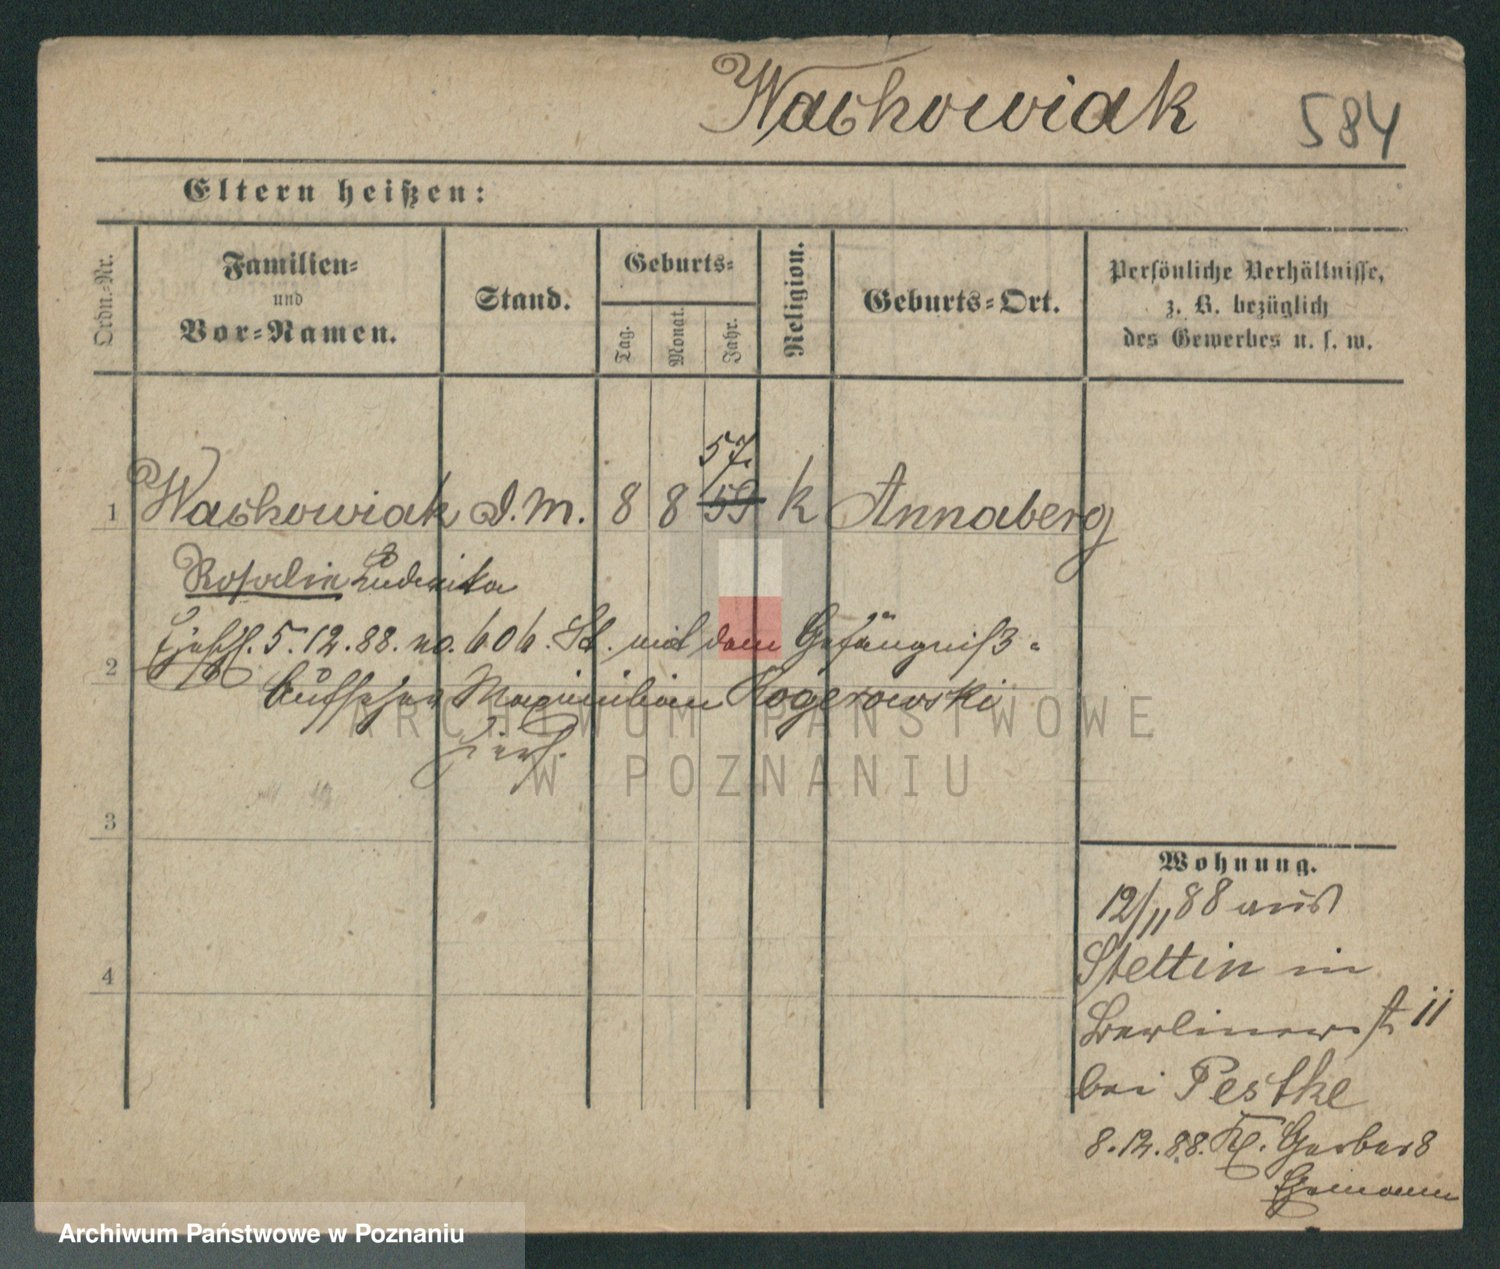 Wachowiak 584
Eltern heißen:
Ordn.-Nr.
Familien-
und
Vor-Namen.
Stand.
Geburts-
Tag.
Monat.
Jahr.
Religion.
Geburts-Ort.
Persönliche Verhältnisse,
z. B. bezüglich
des Gewerbes u. s. w.
57.
1 Wachowiak D. M. 8 8 59 k Annaberg
Rosalie Ludwika
5.12.88. no. 606. St. mit dem Gefängniß-
2
Aufseher Maximilian Rogerowski
hier.
3
4
Wohnung.
12/11 88 aus
Stettin in
Berlinerst 11
bei Pestke
8.12.88. Kl. Gerber 8
Ehemann
ARCHIWUM PAŃSTWOWE
W POZNANIU
Archiwum Państwowe w Poznaniu